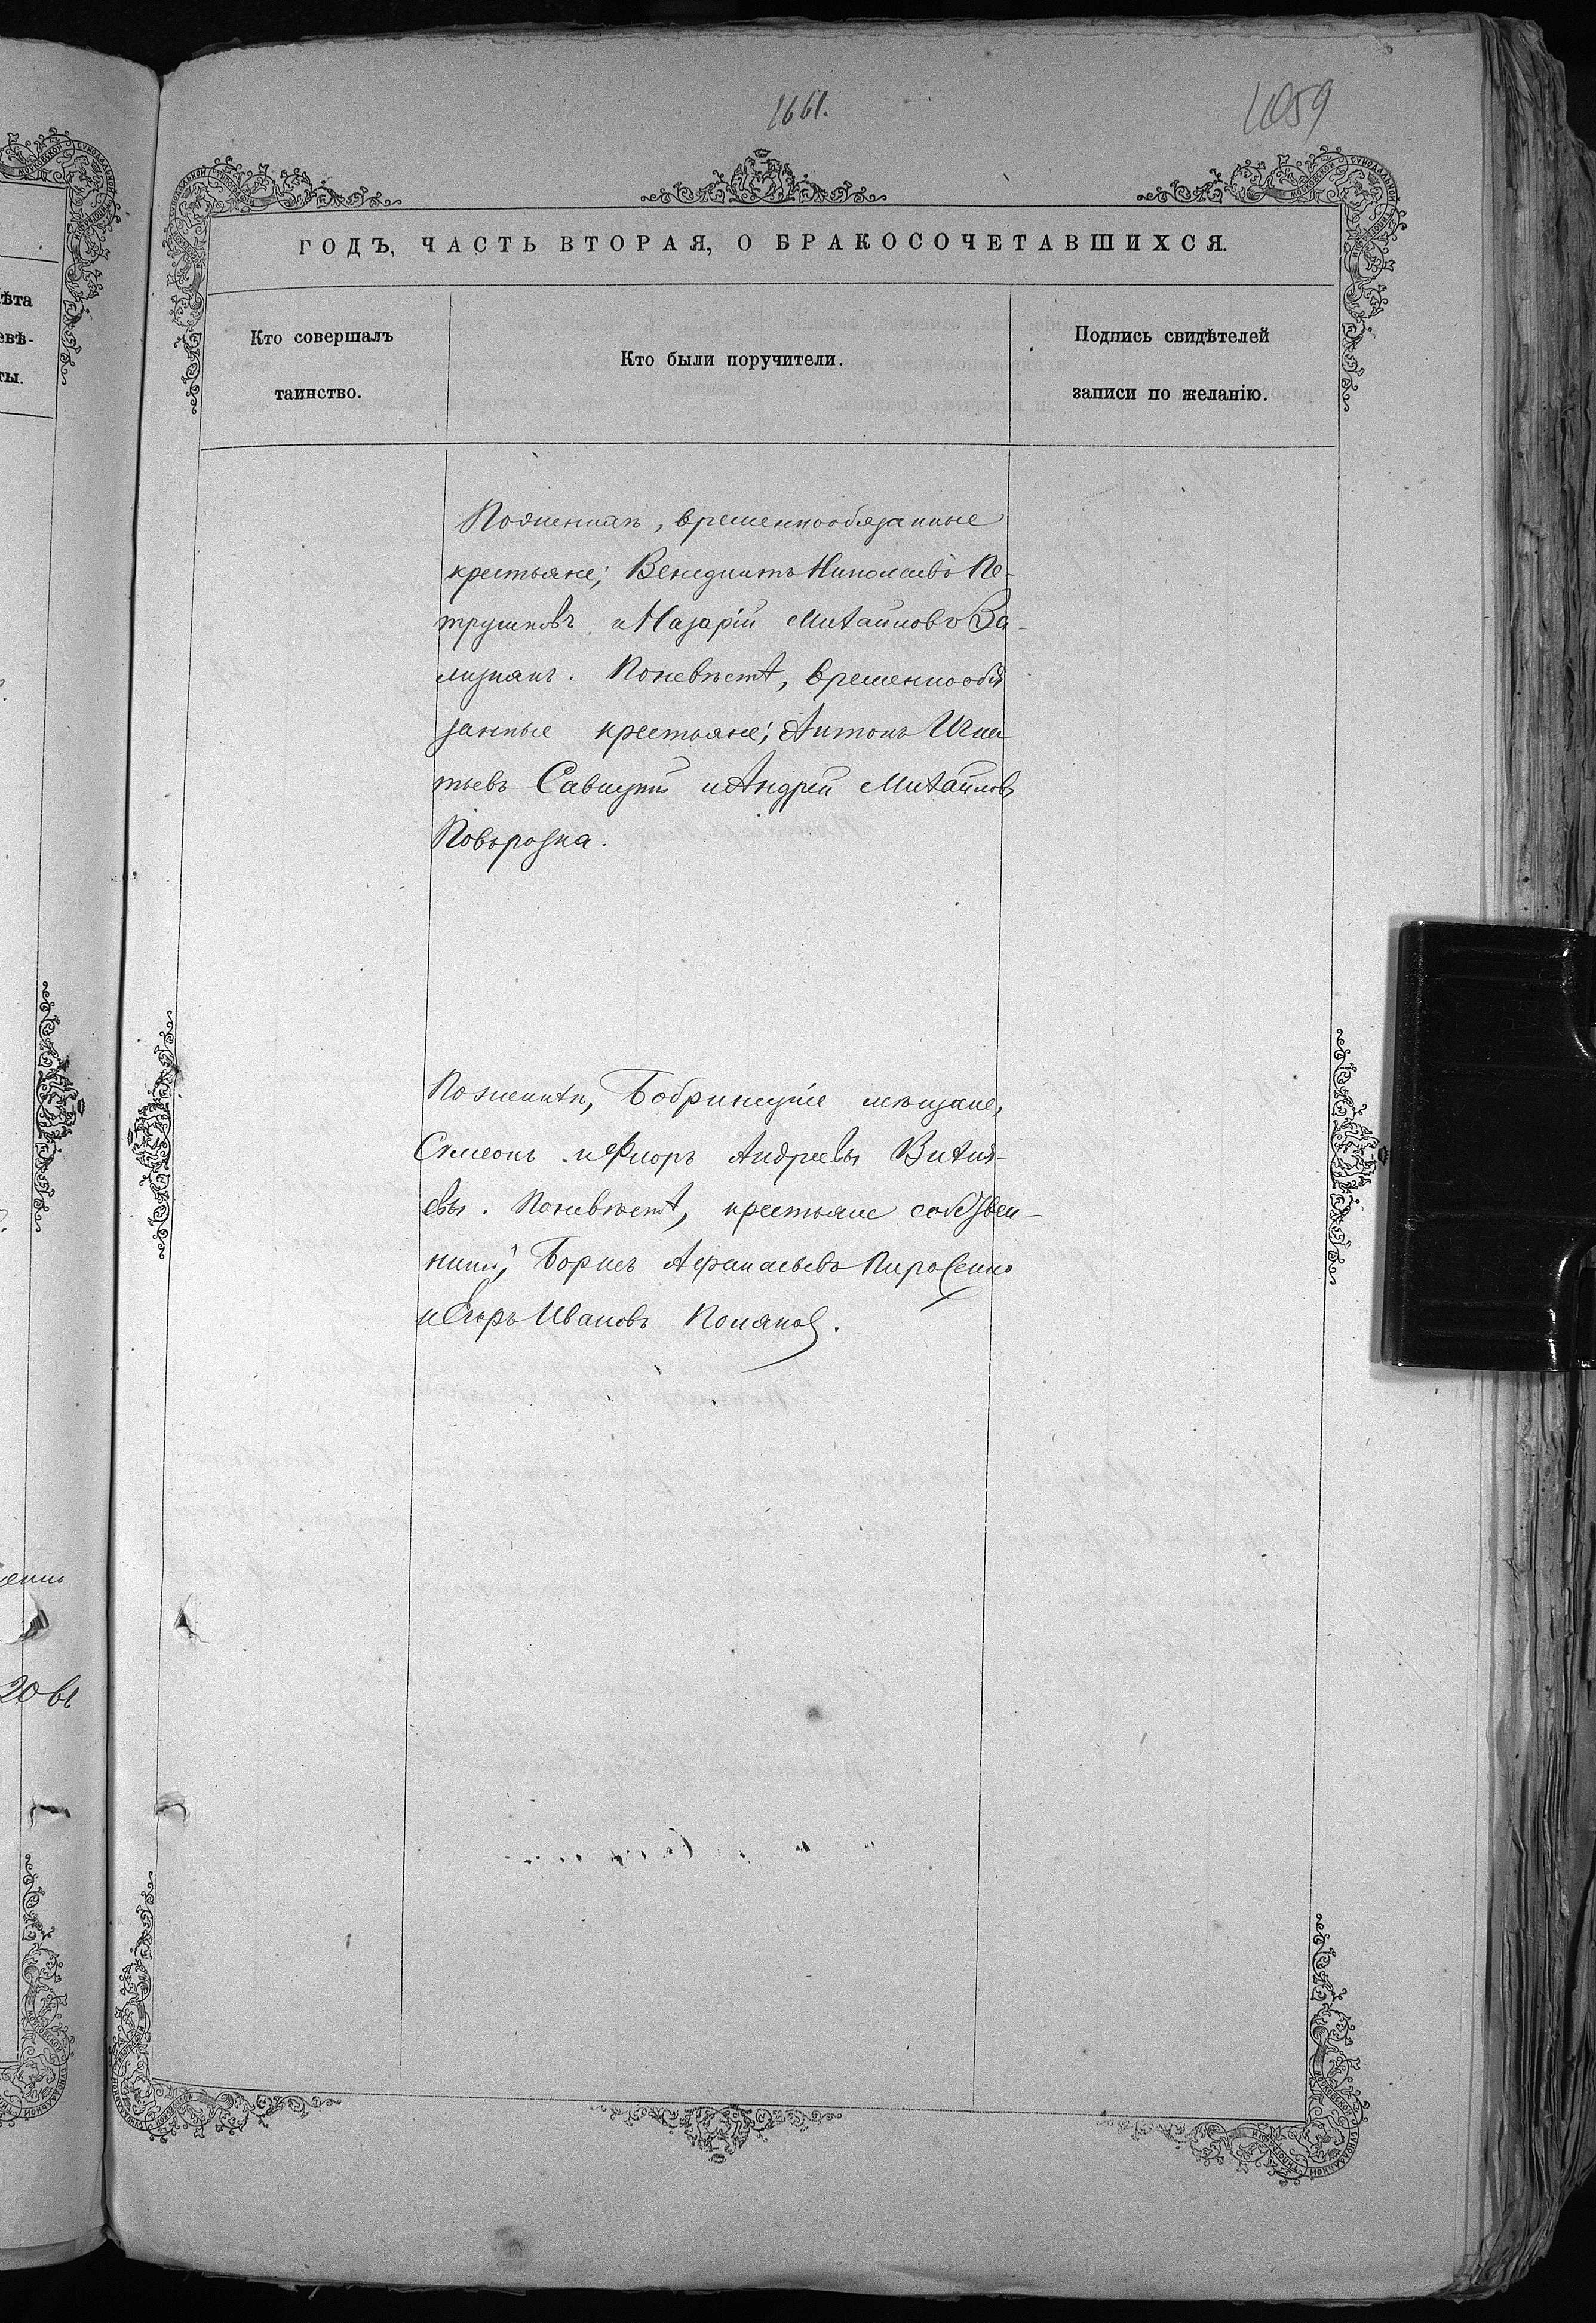 1661.
1059
ГОДЪ, ЧАСТЬ ВТОРАЯ, О БРАКОСОЧЕТАВШИХСЯ.
Кто совершалъ
таинство.
Кто были поручители.
Подпись свидѣтелей
записи по желанію.
По жениихъ, временнообязанные
крестьяне; Венедиктъ Николаевъ Пе-
трушковъ и Назарій Михайловъ За-
лизнякъ. По невѣстѣ, временнообя
занные крестьяне; Антонъ Игна
тьевъ Савицкій и Андрей Михайловъ
Поворозка.
По женихѣ, Бобринецкіе мѣщане,
Симеонъ и Флоръ Андреевы
евы. По невѣстѣ, крестьяне собствен-
ники; Борисъ Афанасьевъ
и Егоръ Ивановъ
ѣта
евѣ-
ты.